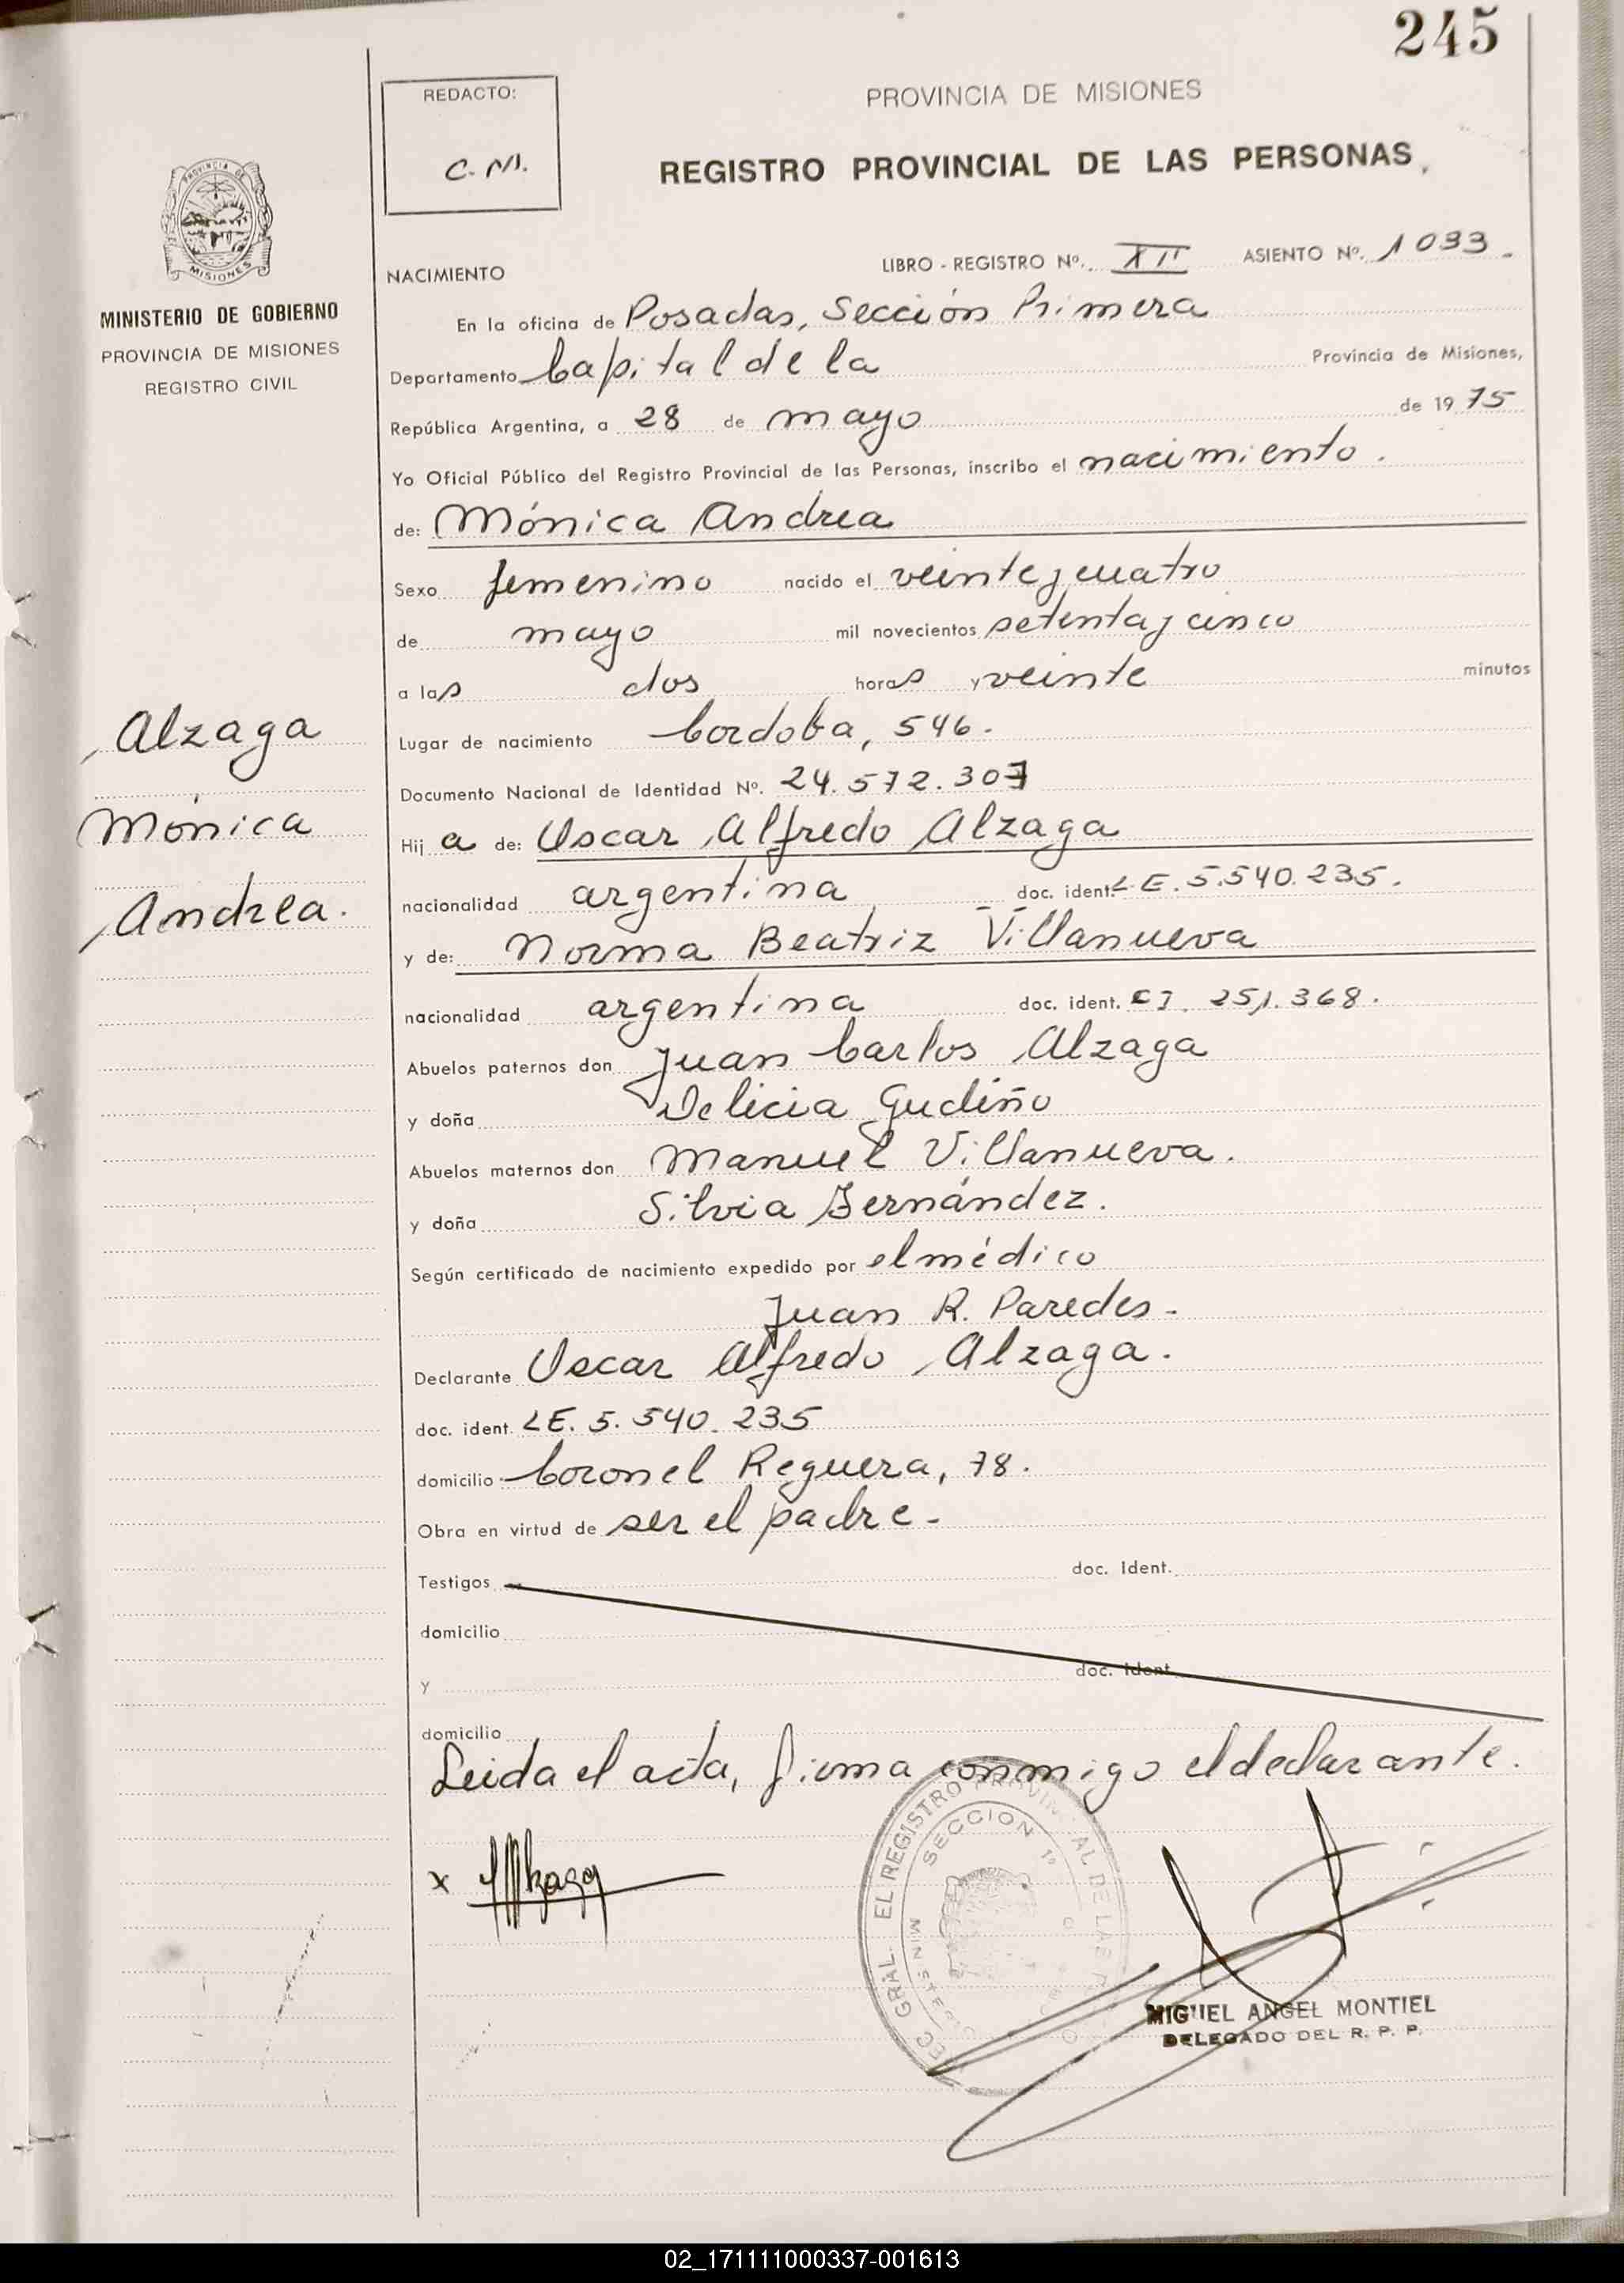 245
REDACTO:
C. M.
PROVINCIA DE MISIONES
REGISTRO PROVINCIAL DE LAS PERSONAS
PROVINCIA DE
MISIONES
MINISTERIO DE GOBIERNO
PROVINCIA DE MISIONES
REGISTRO CIVIL
NACIMIENTO LIBRO - REGISTRO Nº. XII ASIENTO Nº. 1033.
En la oficina de Posadas, Sección Primera
Departamento Capital de la Provincia de Misiones,
República Argentina, a 28 de mayo de 1975
Yo Oficial Público del Registro Provincial de las Personas, inscribo el nacimiento.
de: Mónica Andrea
Sexo femenino nacido el veinte y cuatro
de mayo mil novecientos setenta y cinco
a las dos horas y veinte minutos
Lugar de nacimiento Cordoba, 546.
Documento Nacional de Identidad Nº. 24.572.307
Hij a de: Oscar Alfredo Alzaga
nacionalidad argentina doc. ident. L.E. 5.540.235.
y de: Norma Beatriz Villanueva
nacionalidad argentina doc. ident. CI. 251.368.
Abuelos paternos don Juan Carlos Alzaga
y doña Delicia Gudiño
Abuelos maternos don Manuel Villanueva.
y doña Silvia Fernández.
Según certificado de nacimiento expedido por el médico
Juan R. Paredes-
Declarante Oscar Alfredo Alzaga.
doc. ident. LE. 5.540.235
domicilio Coronel Reguera, 78.
Obra en virtud de ser el padre-
Testigos doc. Ident.
domicilio
y doc. Ident
domicilio
Leida el acta, firma conmigo el declarante.
Alzaga
Mónica
Andrea.
x
GRAL. EL REGISTRO PROVIN AL DE LAS
SECCION 1º
MIGUEL ANGEL MONTIEL
DELEGADO DEL R. P. P.
02_171111000337-001613